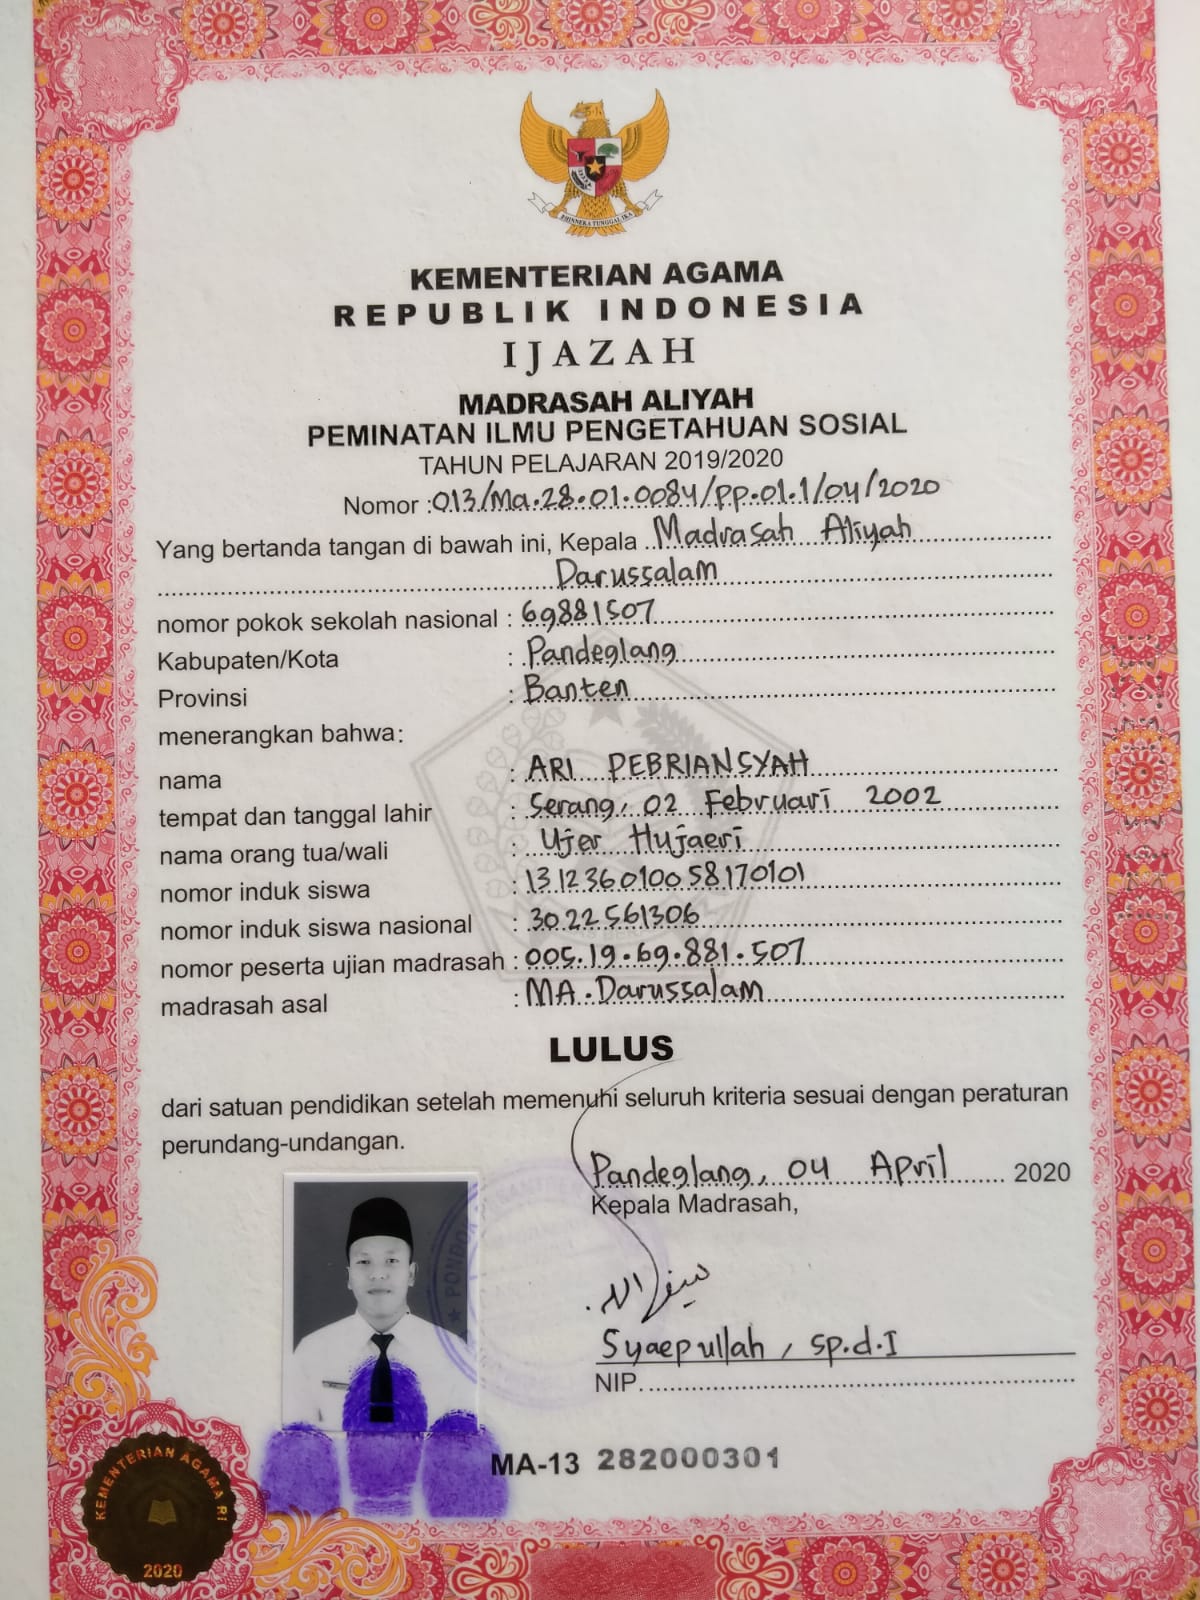 BHINNEKA TUNGGAL IKA
KEMENTERIAN AGAMA
REPUBLIK INDONESIA
IJAZAH
MADRASAH ALIYAH
PEMINATAN ILMU PENGETAHUAN SOSIAL
TAHUN PELAJARAN 2019/2020
Nomor : 013/Ma.28.01.0084/PP.01.1/04/2020
Yang bertanda tangan di bawah ini, Kepala Madrasah Aliyah
Darussalam
nomor pokok sekolah nasional : 69881507
Kabupaten/Kota : Pandeglang
Provinsi : Banten
menerangkan bahwa:
nama : ARI PEBRIANSYAH
tempat dan tanggal lahir : Serang, 02 Februari 2002
nama orang tua/wali : Ujer Hujaeri
nomor induk siswa : 131236010058170101
nomor induk siswa nasional : 3022561306
nomor peserta ujian madrasah : 005.19.69.881.507
madrasah asal : MA. Darussalam
LULUS
dari satuan pendidikan setelah memenuhi seluruh kriteria sesuai dengan peraturan
perundang-undangan.
Pandeglang, 04 April 2020
Kepala Madrasah,
Syaepullah, Sp.d.I
NIP.
MA-13 282000301
PONDOK
KEMENTERIAN AGAMA RI
2020